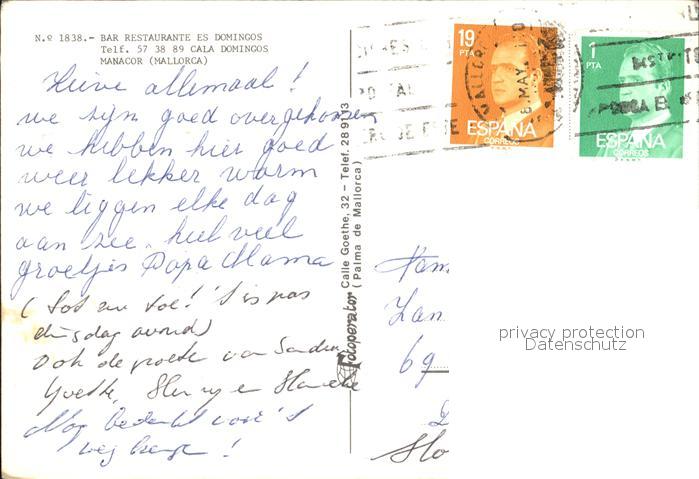 N.º 1838.- BAR RESTAURANTE ES DOMINGOS
Telf. 57 38 89 CALA DOMINGOS
MANACOR (MALLORCA)
Lieve allemaal!
we zijn goed overgekomen
we hebben hier goed
weer lekker warm
we liggen elke dag
aan zee. heel veel
groetjes Papa Mama
(Tot nu toe! 't is pas
dinsdag avond)
Ook de groeten van Sandra
Yvette, Henny en
Nog bedankt voor 't
weg brengen!
Fotoperator Calle Goethe, 32 - Telef. 28 91 13
(Palma de Mallorca)
19
PTA
ESPAÑA
CORREOS
1
PTA
ESPAÑA
CORREOS
MAY
Fam
69
privacy protection
Datenschutz